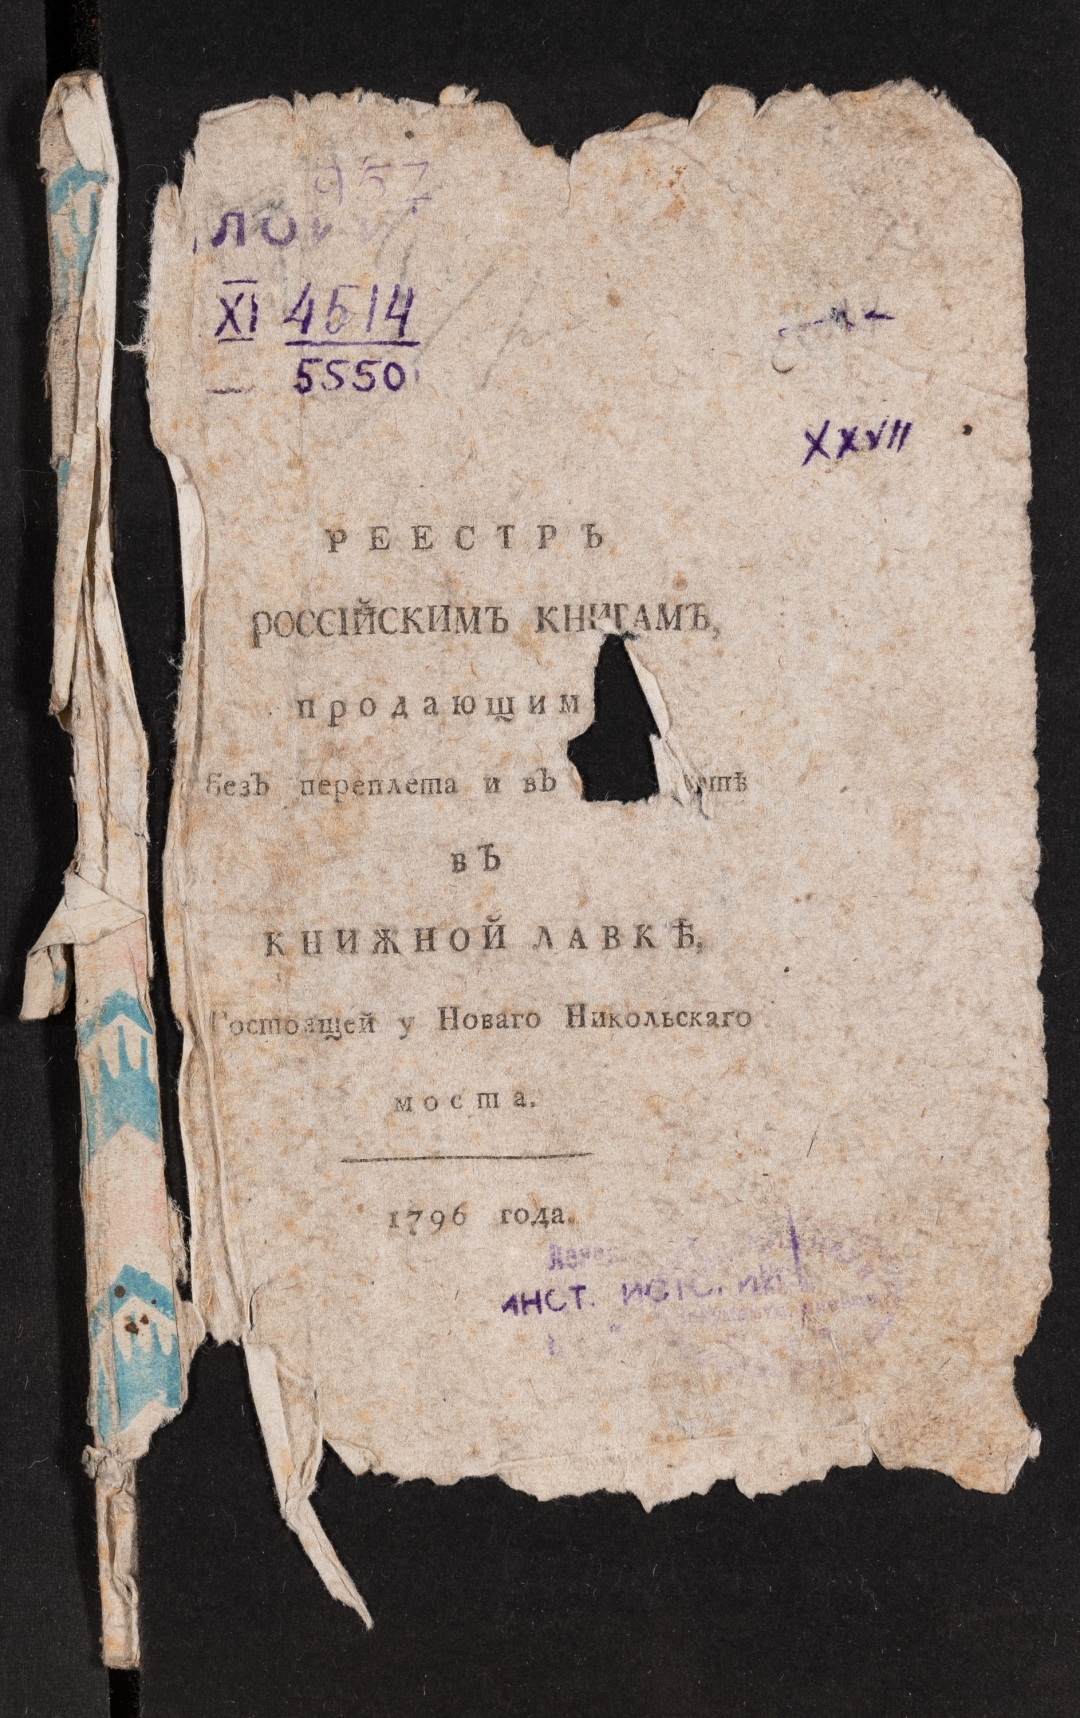 957
ЛО
XI 4514
5550
XXVII
РЕЕСТРЪ
РОССІЙСКИМЪ КНИГАМЪ,
продающим
безъ переплета и въ
въ
КНИЖНОЙ ЛАВКѢ,
Состоящей у Новаго Никольскаго
моста.
1796 года.
ИНСТ.